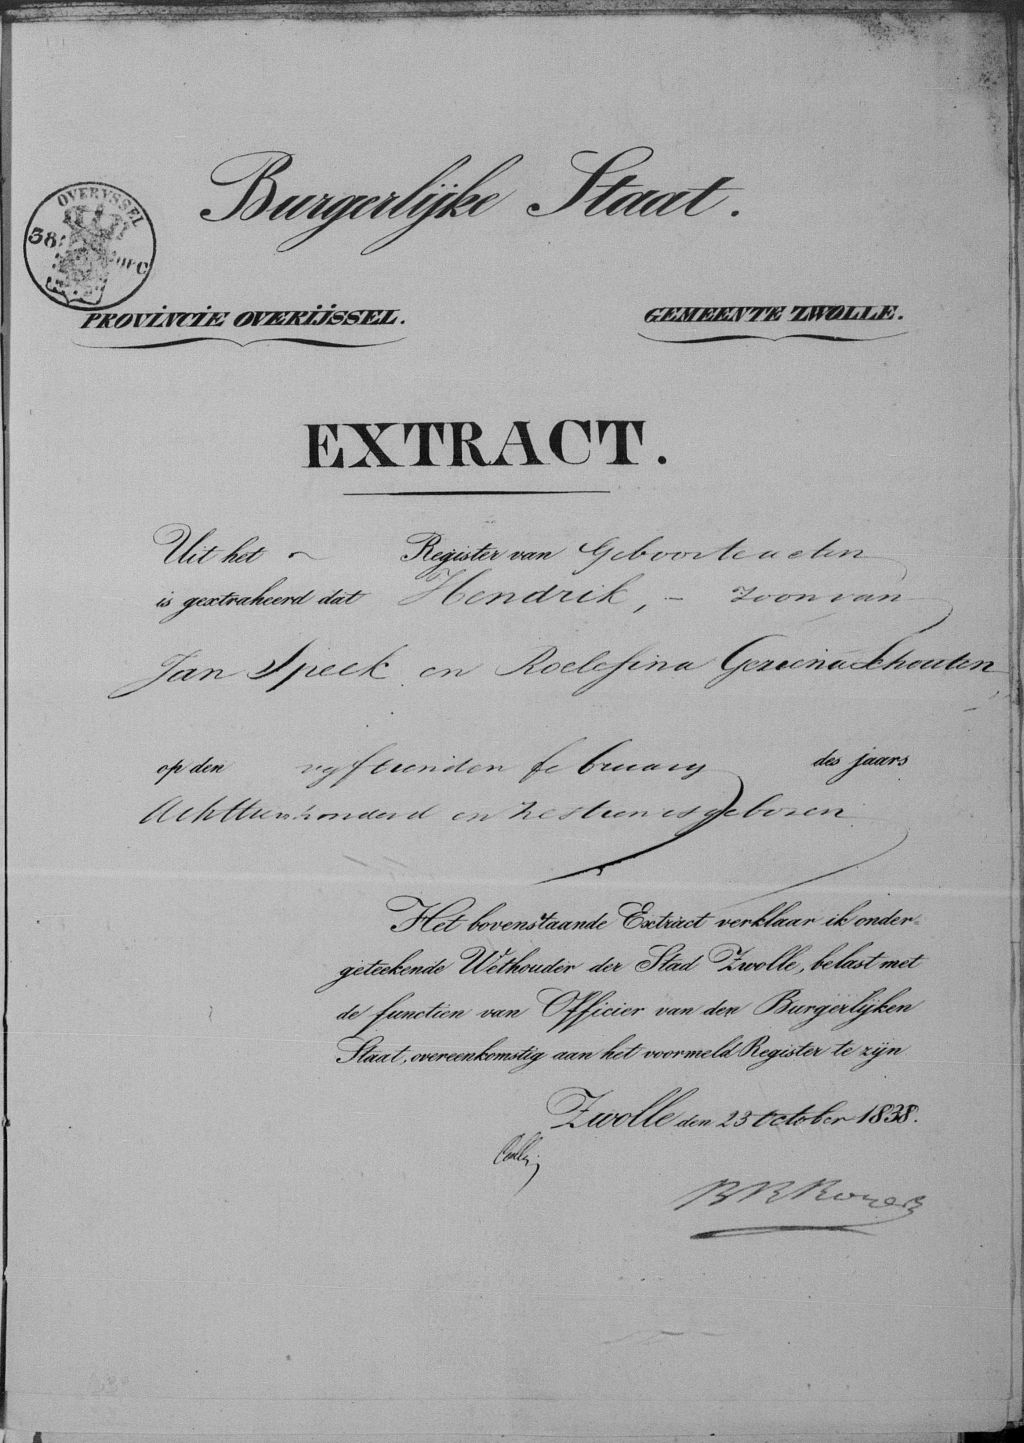 Burgerlijke Staat.
OVERYSSEL
38
PROVINCIE OVERIJSSEL. GEMEENTE ZWOLLE.
EXTRACT.
Uit het ~ Register van Geboorte acten
is gextraheerd dat Hendrik, - zoon van
Jan Speek en Roelefina Gezina Schouten
op den vyftienden february des jaars
Achttienhonderd en zestien is geboren
Het bovenstaande Extract verklaar ik onder-
geteekende Wethouder der Stad Zwolle, belast met
de functien van Officier van den Burgerlijken
Staat, overeenkomstig aan het voormeld Register te zijn
Zwolle den 23 October 1838.